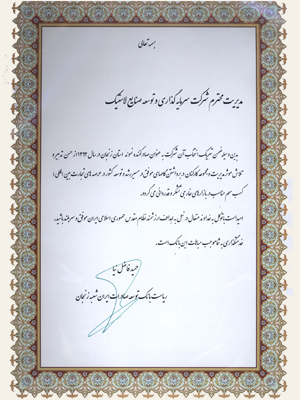 بسمه تعالی
مدیریت محترم شرکت سرمایه گذاری و توسعه صنایع لاستیک
بدین وسیله ضمن تبریک انتخاب آن شرکت به عنوان صادرکننده نمونه استان زنجان در سال ۱۳۹۳ از حسن تدبیر و
تلاش مؤثر مدیریت و مجموعه کارکنان در برداشتن گامهای موفق در مسیر رشد و توسعه کشور در عرصه های تجارت بین المللی و
کسب سهم مناسب در بازارهای خارجی تشکر و قدردانی می گردد.
امید است با توکل به خداوند متعال در نیل به اهداف ارزشمند نظام مقدس جمهوری اسلامی ایران موفق و سربلند باشید.
خدمتگزاری به شما موجب مباهات این بانک است.
حمید فاضل نیا
ریاست بانک توسعه صادرات ایران شعبه زنجان